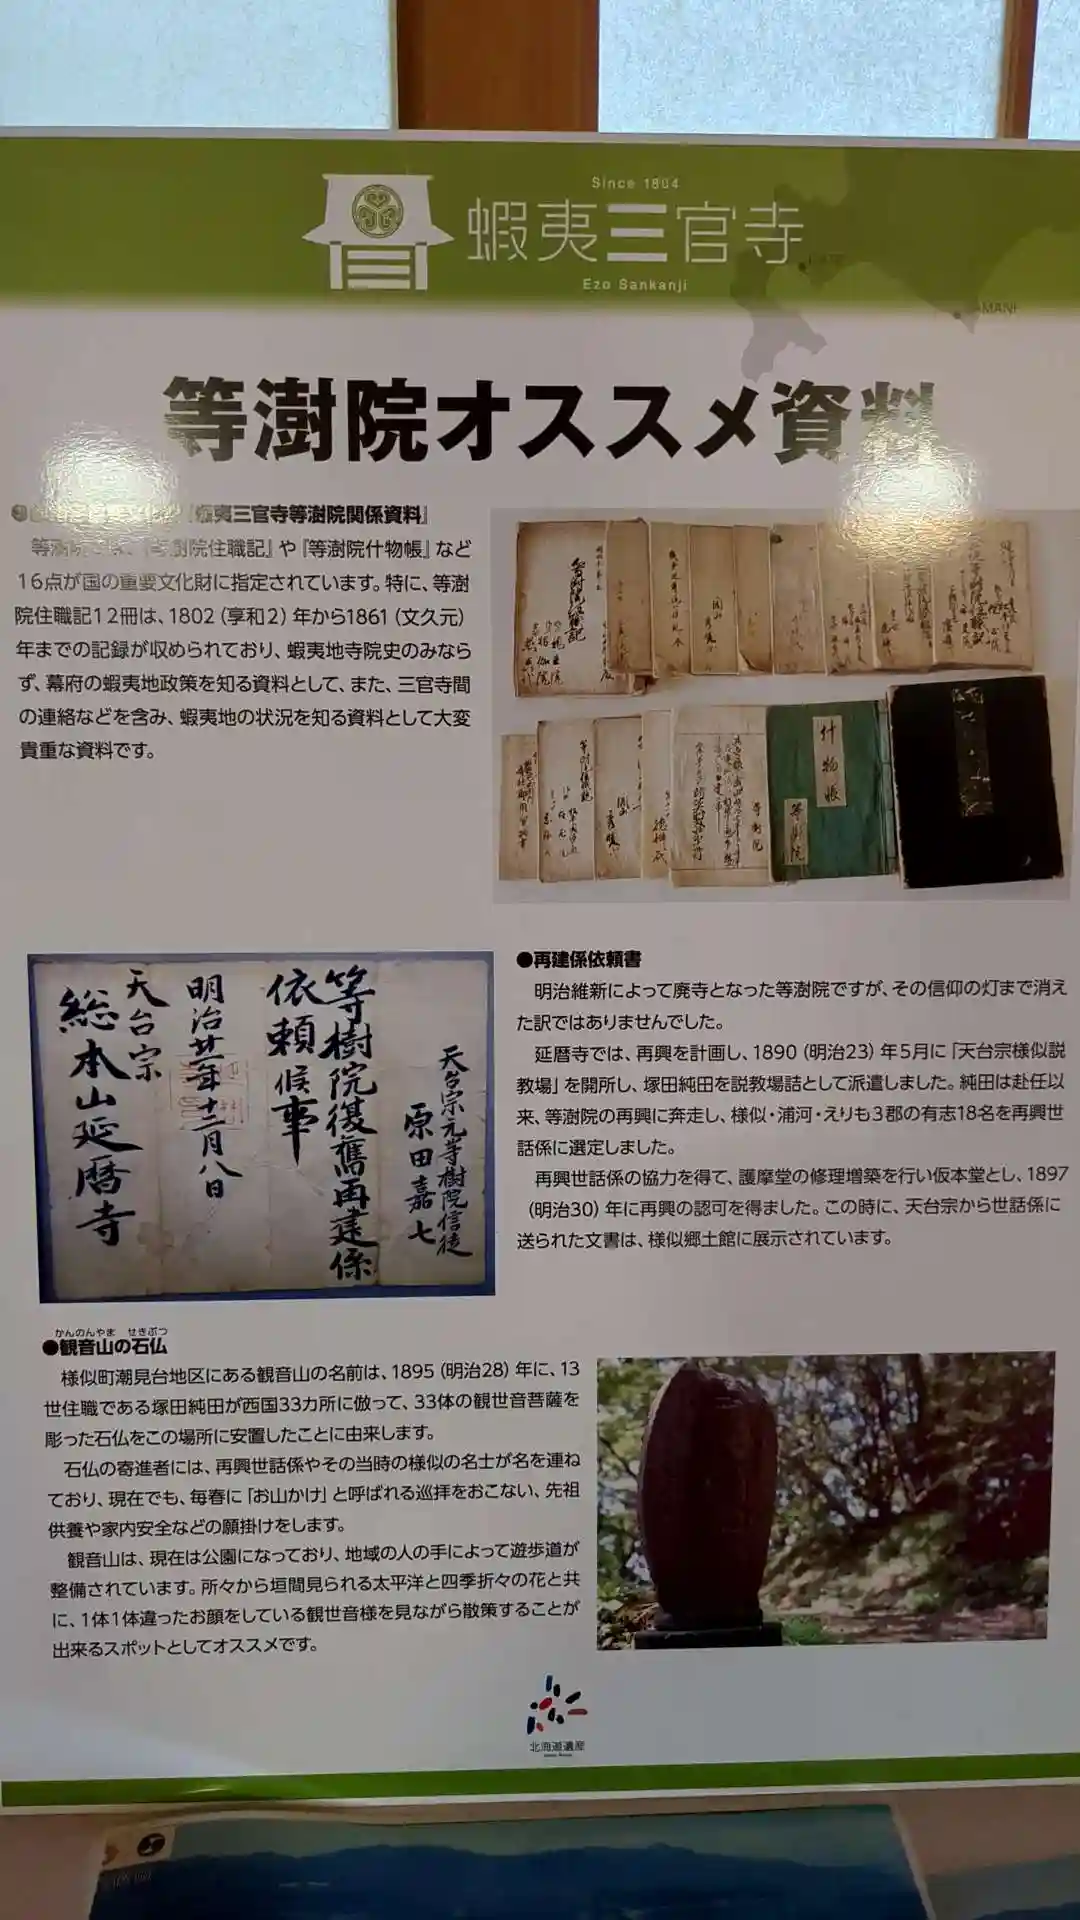 Since 1804
蝦夷三官寺
Ezo Sankanji
MANI
等澍院オススメ資料
『蝦夷三官寺等澍院関係資料』
『等澍院住職記』や『等澍院什物帳』など
16点が国の重要文化財に指定されています。特に、等澍
院住職記12冊は、1802（享和2）年から1861（文久元）
年までの記録が収められており、蝦夷地寺院史のみなら
ず、幕府の蝦夷地政策を知る資料として、また、三官寺間
の連絡などを含み、蝦夷地の状況を知る資料として大変
貴重な資料です。
什物帳
等澍院
等澍院
●再建係依頼書
明治維新によって廃寺となった等澍院ですが、その信仰の灯まで消え
た訳ではありませんでした。
延暦寺では、再興を計画し、1890（明治23）年5月に「天台宗様似説
教場」を開所し、塚田純田を説教場詰として派遣しました。純田は赴任以
来、等澍院の再興に奔走し、様似・浦河・えりも3郡の有志18名を再興世
話係に選定しました。
再興世話係の協力を得て、護摩堂の修理増築を行い仮本堂とし、1897
（明治30）年に再興の認可を得ました。この時に、天台宗から世話係に
送られた文書は、様似郷土館に展示されています。
天台宗元等樹院信徒
原田嘉七
等樹院復舊再建係
依頼候事
明治廿一年十二月八日
天台宗
総本山延暦寺
かんのんやま せきぶつ
●観音山の石仏
様似町潮見台地区にある観音山の名前は、1895（明治28）年に、13
世住職である塚田純田が西国33カ所に倣って、33体の観世音菩薩を
彫った石仏をこの場所に安置したことに由来します。
石仏の寄進者には、再興世話係やその当時の様似の名士が名を連ね
ており、現在でも、毎春に「お山かけ」と呼ばれる巡拝をおこない、先祖
供養や家内安全などの願掛けをします。
観音山は、現在は公園になっており、地域の人の手によって遊歩道が
整備されています。所々から垣間見られる太平洋と四季折々の花と共
に、1体1体違ったお顔をしている観世音様を見ながら散策することが
出来るスポットとしてオススメです。
北海道遺産